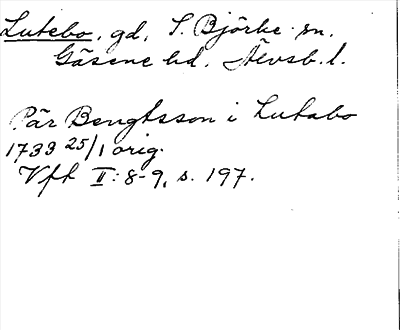 Lutebo, gd, S. Björke sn.
Gäsene hd, Älvsb. l.
Pär Bengtsson i Lutabo
1733 25/1 orig.
Vft II: 8-9, s. 197.